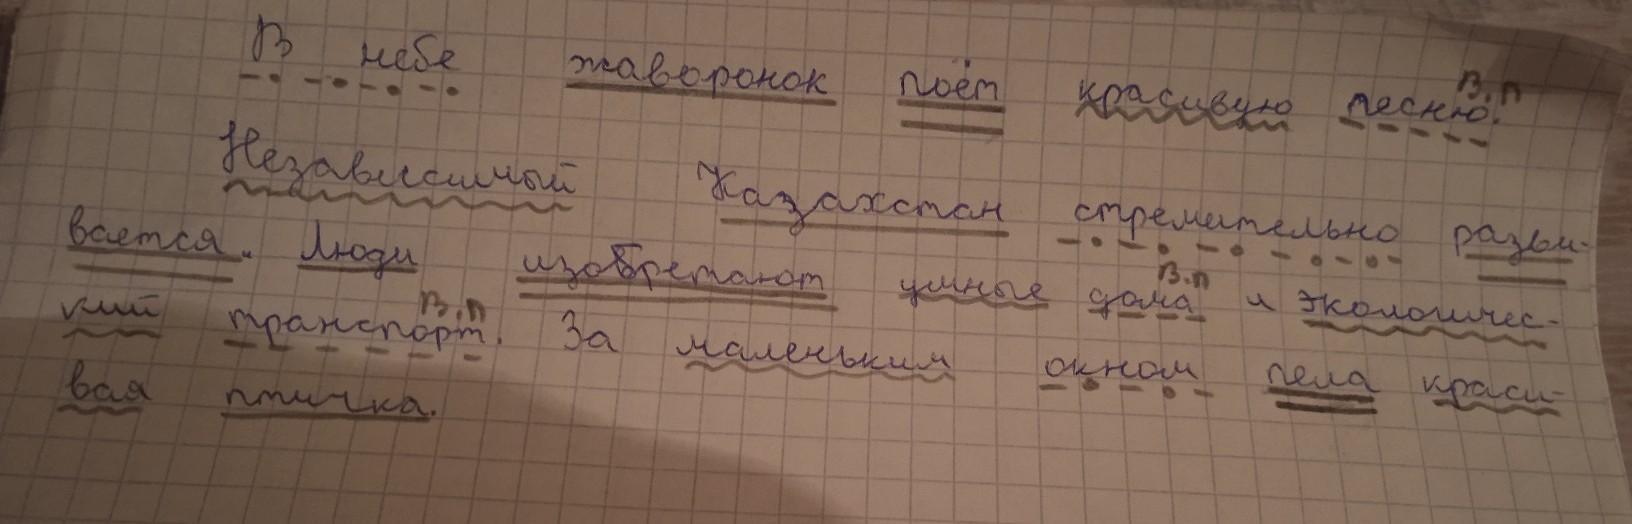 В небе жаворонок поёт красивую песню.
В.п
Независимый Казахстан стремительно разви-
вается. Люди изобретают умные дома и экологичес-
В.п
кий транспорт. За маленьким окном пела краси-
В.п
вая птичка.